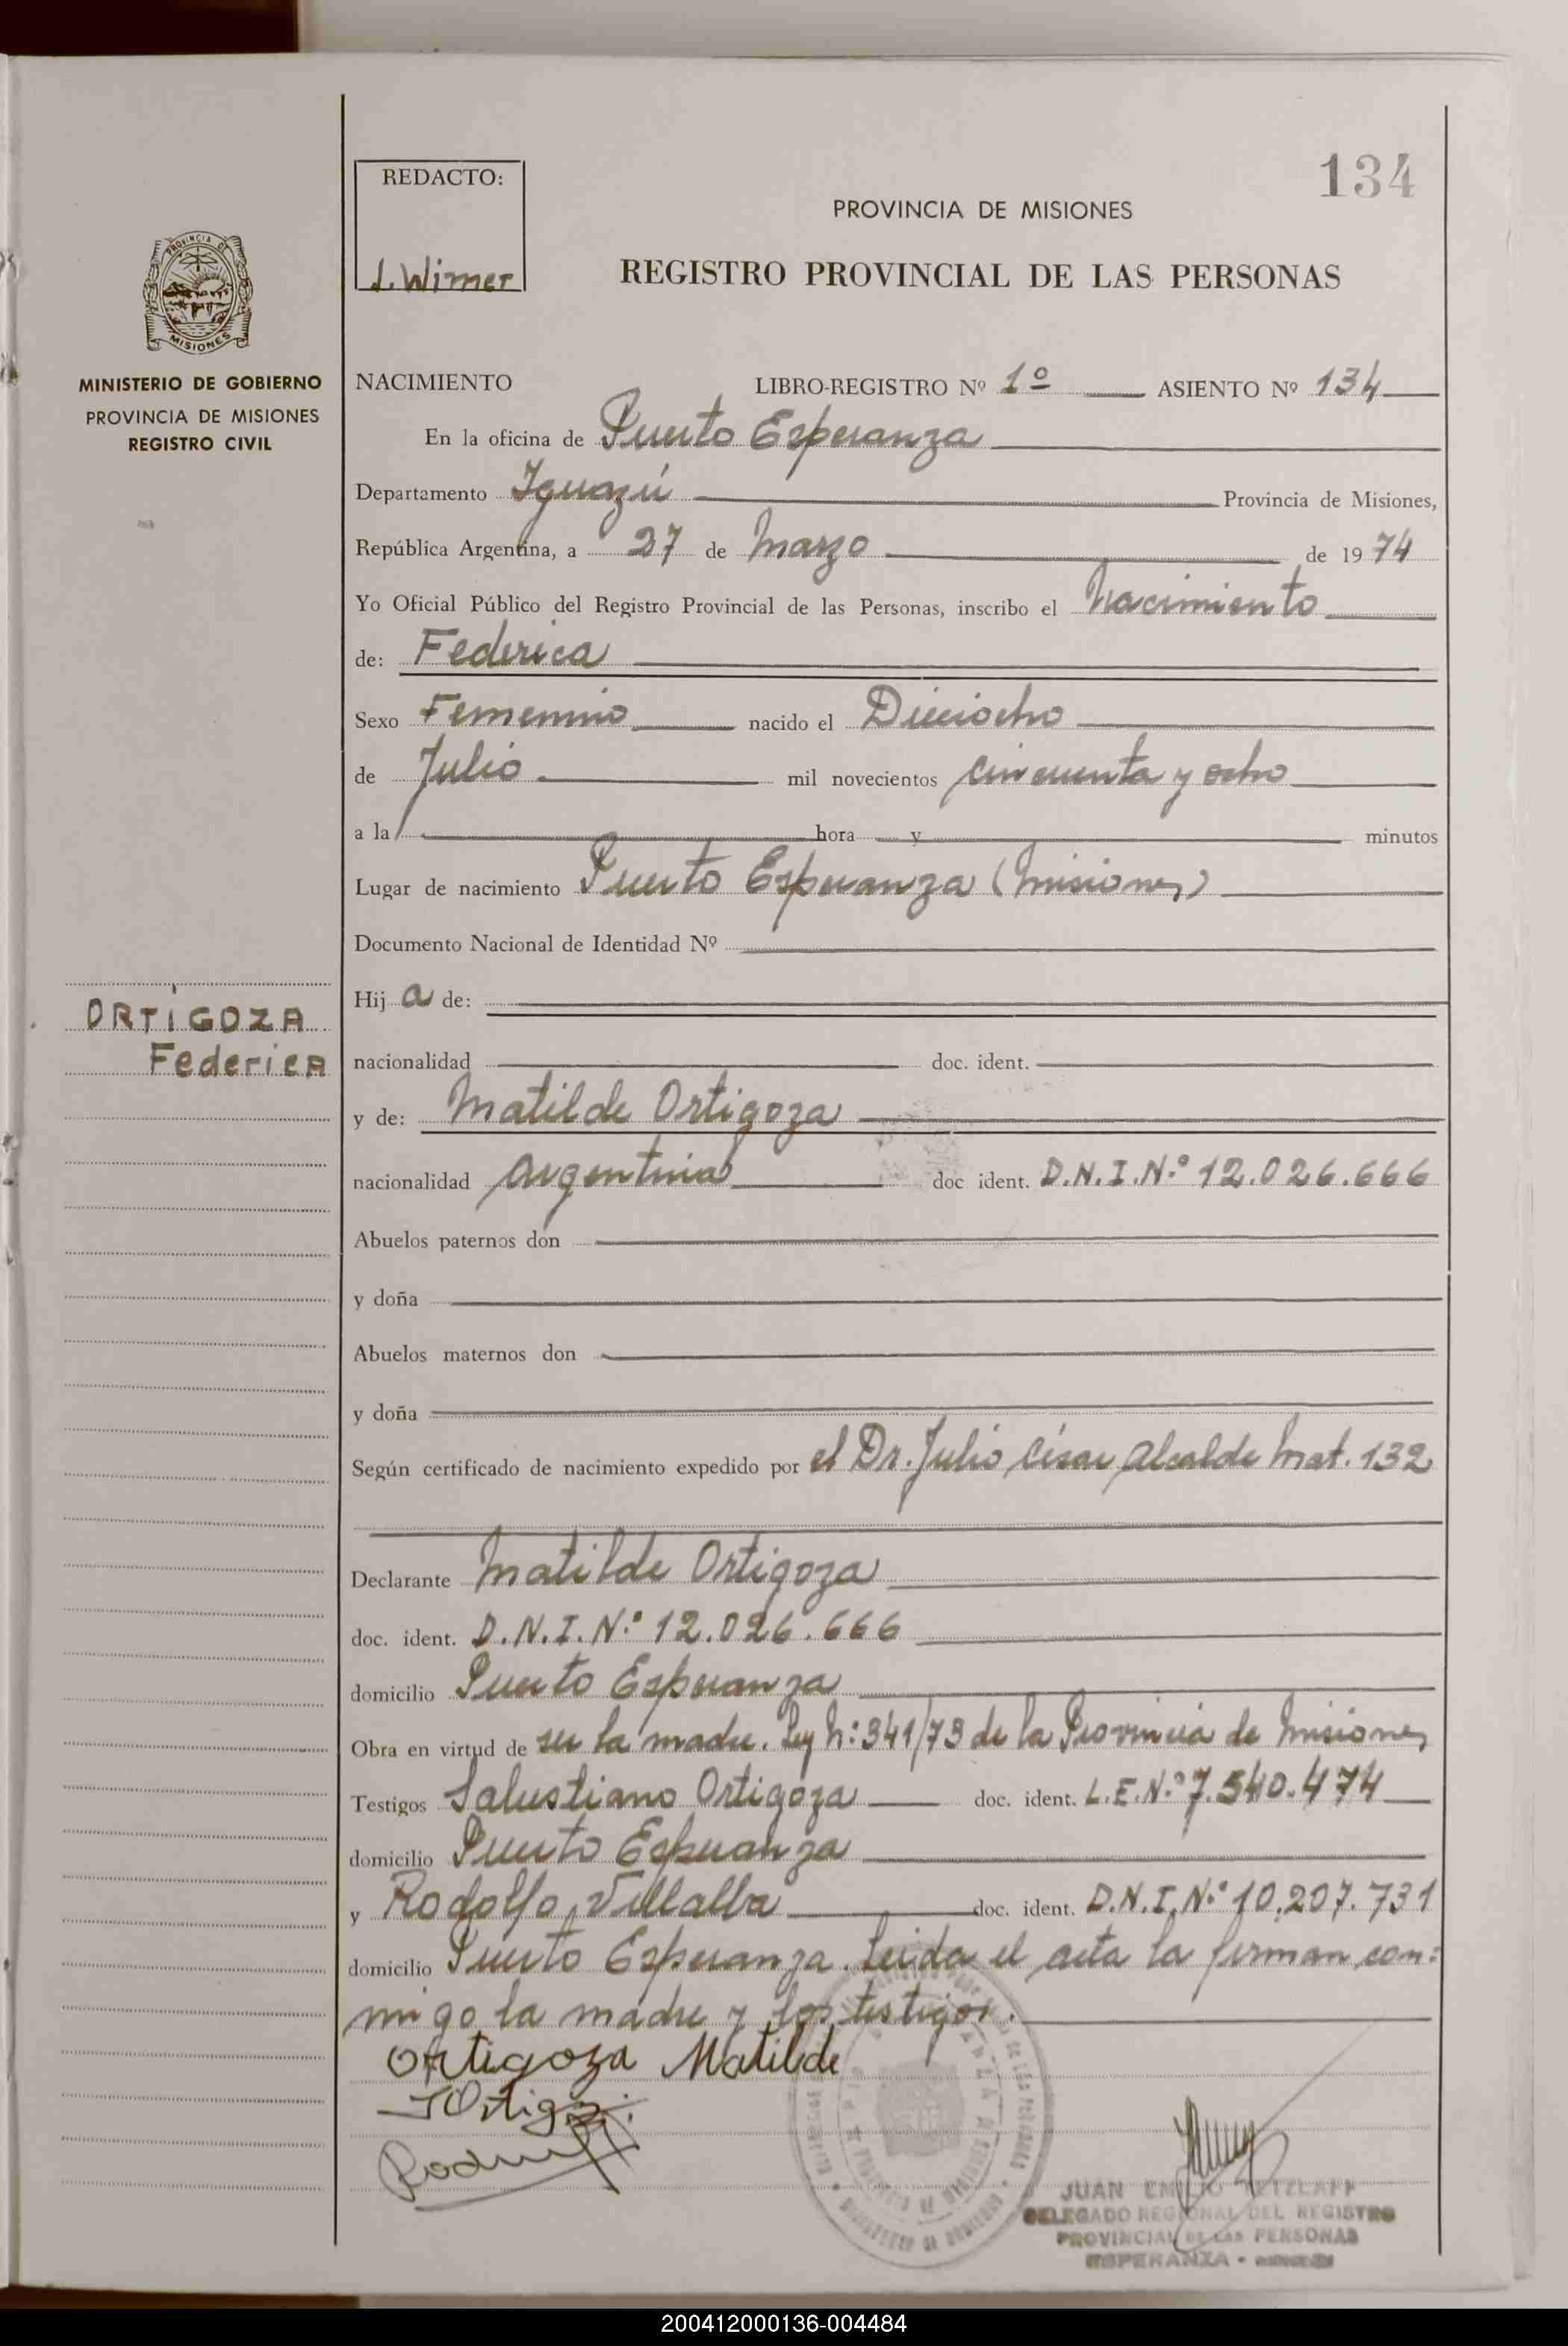 134
REDACTO:
J. Wimer
PROVINCIA DE MISIONES
REGISTRO PROVINCIAL DE LAS PERSONAS
PROVINCIA DE
MISIONES
MINISTERIO DE GOBIERNO
PROVINCIA DE MISIONES
REGISTRO CIVIL
ORTIGOZA
Federica
NACIMIENTO LIBRO-REGISTRO Nº 1º ASIENTO Nº 134
En la oficina de Puerto Esperanza
Departamento Iguazú Provincia de Misiones,
República Argentina, a 27 de Marzo de 1974
Yo Oficial Público del Registro Provincial de las Personas, inscribo el Nacimiento
de: Federica
Sexo Femenino nacido el Dieciocho
de Julio mil novecientos cincuenta y ocho
a la hora y minutos
Lugar de nacimiento Puerto Esperanza (Misiones)
Documento Nacional de Identidad Nº
Hija de:
nacionalidad doc. ident.
y de: Matilde Ortigoza
nacionalidad Argentina doc ident. D.N.I.N.º 12.026.666
Abuelos paternos don
y doña
Abuelos maternos don
y doña
Según certificado de nacimiento expedido por el Dr. Julio César Alcalde Mat. 132
Declarante Matilde Ortigoza
doc. ident. D.N.I.N.º 12.026.666
domicilio Puerto Esperanza
Obra en virtud de ser la madre. Ley N: 341/73 de la Provincia de Misiones
Testigos Salustiano Ortigoza doc. ident. L.E.N.º 7.540.474
domicilio Puerto Esperanza
y Rodolfo Villalba doc. ident. D.N.I.N.º 10.207.731
domicilio Puerto Esperanza. Leida el acta la firman con:
migo la madre y los testigos.
Ortigoza Matilde
JUAN EMILIO TETZLAFF
DELEGADO REGIONAL DEL REGISTRO
PROVINCIAL DE LAS PERSONAS
ESPERANZA -
200412000136-004484